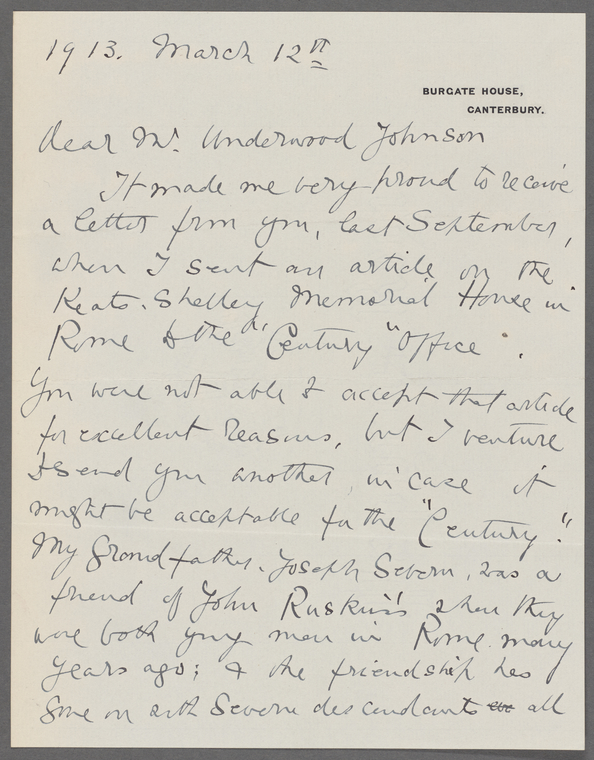 1913. March 12th
BURGATE HOUSE,
CANTERBURY.
Dear Mr. Underwood Johnson
It made me very proud to receive
a letter from you, last September,
when I sent an article on the
Keats-Shelley Memorial House in
Rome to the "Century" Office.
You were not able to accept that article
for excellent reasons, but I venture
to send you another, in case it
might be acceptable for the "Century".
My Grandfather, Joseph Severn, was a
friend of John Ruskin's when they
were both young men in Rome many
years ago; & the friendship has
gone on with Severn descendants all